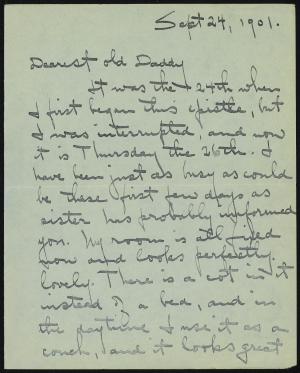 Sept 24, 1901.
Dearest old Daddy
It was the 24th when
I first began this epistle, but
I was interrupted, and now
it is Thursday the 26th. I
have been just as busy as could
be these first few days as
sister has probably informed
you. My room is all fixed
now and looks perfectly
lovely. There is a cot in it
instead of a bed, and in
the daytime I use it as a
couch, and it looks great